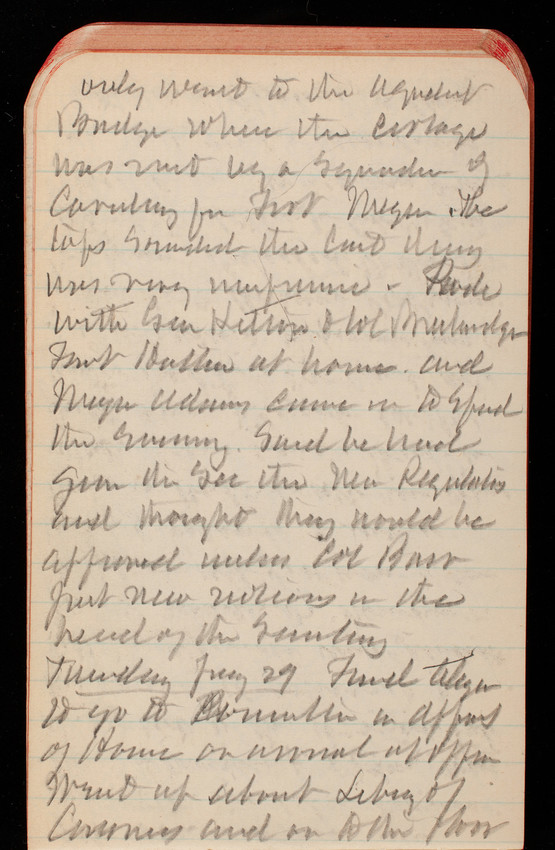 only went to the Aqueduct
Bridge where the Cortage
was met by a Squadron of
Cavalry from Fort Myer. The
taps Sounded the last thing
was very impressive - Rode
with Gen & Col Breckridge
Found at home. and
Major Adams came in to Spend
the Evening. Said he had
given the Sec the New Regulations
and thought they would be
approved unless Col Barr
put new notions in the
head of the Secretary
Tuesday 29 Found
to go to in
of Home on arrival at office
Went up about
and on to the floor